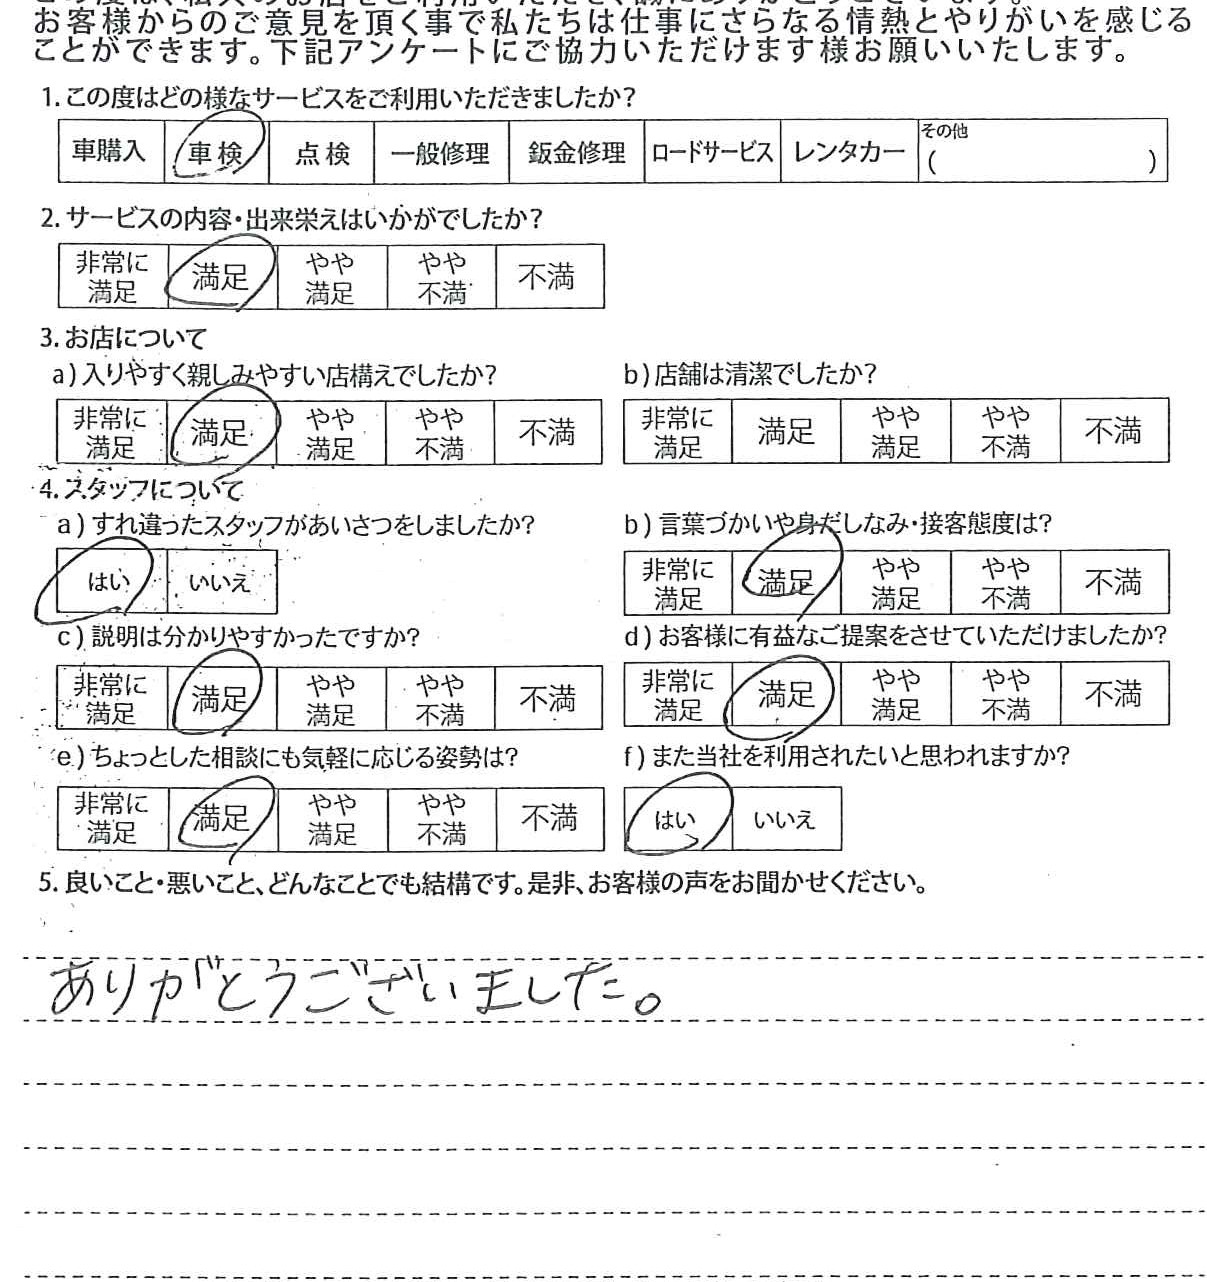 お客様からのご意見を頂く事で私たちは仕事にさらなる情熱とやりがいを感じる
ことができます。下記アンケートにご協力いただけます様お願いいたします。
1. この度はどの様なサービスをご利用いただきましたか?
車購入 車検 点検 一般修理 鈑金修理 ロードサービス レンタカー その他 ( )
2. サービスの内容・出来栄えはいかがでしたか?
非常に満足 満足 やや満足 やや不満 不満
3. お店について
a) 入りやすく親しみやすい店構えでしたか?
非常に満足 満足 やや満足 やや不満 不満
b) 店舗は清潔でしたか?
非常に満足 満足 やや満足 やや不満 不満
4. スタッフについて
a) すれ違ったスタッフがあいさつをしましたか?
はい いいえ
b) 言葉づかいや身だしなみ・接客態度は?
非常に満足 満足 やや満足 やや不満 不満
c) 説明は分かりやすかったですか?
非常に満足 満足 やや満足 やや不満 不満
d) お客様に有益なご提案をさせていただけましたか?
非常に満足 満足 やや満足 やや不満 不満
e) ちょっとした相談にも気軽に応じる姿勢は?
非常に満足 満足 やや満足 やや不満 不満
f) また当社を利用されたいと思われますか?
はい いいえ
5. 良いこと・悪いこと、どんなことでも結構です。是非、お客様の声をお聞かせください。
ありがとうございました。